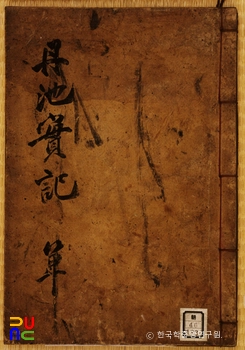 丹池實記 單
© 한국학중앙연구원.